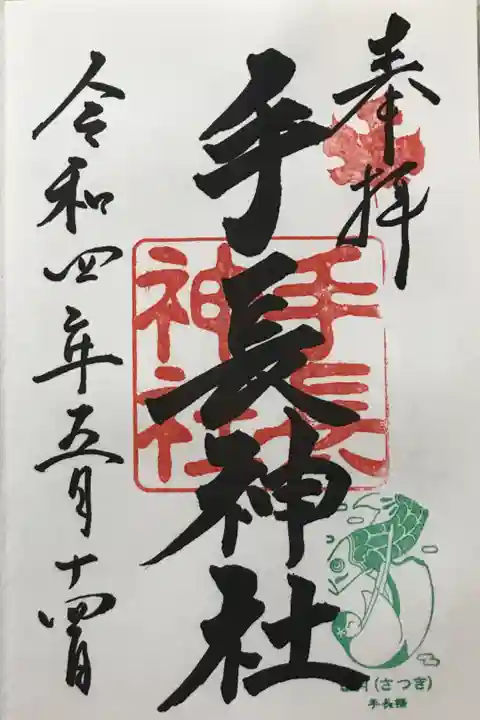 奉拝
手長神社
手長神社
令和四年五月十四日
(さつき)
手長